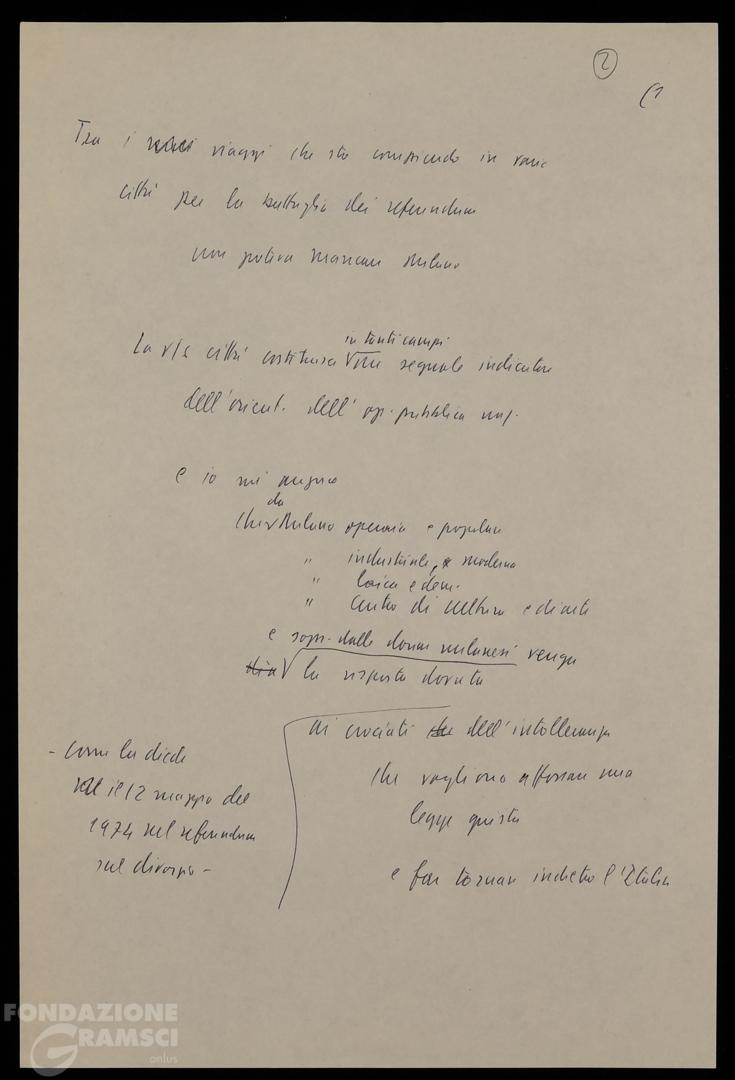 2
(1
Tra i viaggi che sto compiendo in varie
città per la battaglia dei referendum
non poteva mancare Milano
in tanti campi
La v/s città costituisce un segnale indicatore
dell'orient. dell'op. pubblica naz.
e io mi auguro
da
che Milano operaia e popolare
" industriale, e moderna
" laica e dem.
" centro di cultura e di arte
e sopr. dalle donne milanesi venga
dia la risposta dovuta
ai crociati che dell'intolleranza
che vogliono affossare una
legge giusta
e far tornare indietro l'Italia
- come la diede
il 12 maggio del
1974 nel referendum
sul divorzio -
FONDAZIONE
GRAMSCI
onlus